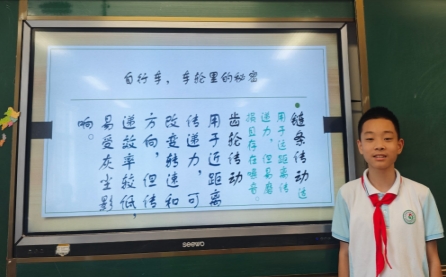 自行车，车轮里的秘密
链条传动 适
用于远距离传
递力，但易磨
损且存在噪音
齿轮传动
用于近距离
传递力，可
改变转速和
方向，但传
递效率较低，
易受灰尘影
响。
seewo